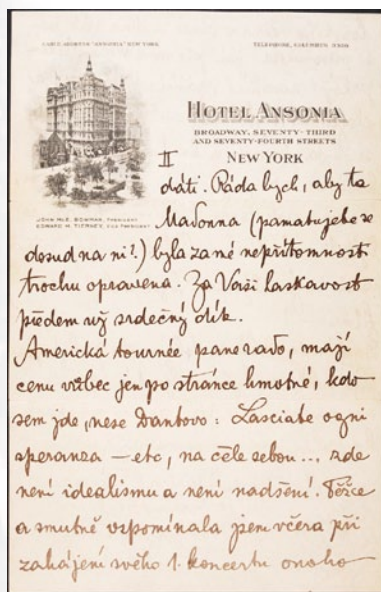 CABLE ADDRESS "ANSONIA" NEW YORK
TELEPHONE, COLUMBUS
HOTEL ANSONIA
BROADWAY, SEVENTY-THIRD
AND SEVENTY-FOURTH STREETS
NEW YORK
JOHN McE. BOWMAN, PRESIDENT
EDWARD M. TIERNEY, VICE PRESIDENT
II
dáti. Ráda bych, aby ta
Madonna (pamatujete se
dosud na ni?) byla za mé nepřítomnosti
trochu opravena. Za Vaši laskavost
předem už srdečný dík.
Americká tournée pane rado, mají
cenu vůbec jen po stránce hmotné, kdo
sem jde, nese Dantovo: Lasciate ogni
speranza — etc, na čele sebou... zde
není idealismu a není nadšení. Těžce
a smutně vzpomínala jsem včera při
zahájení svého 1. koncertu onoho